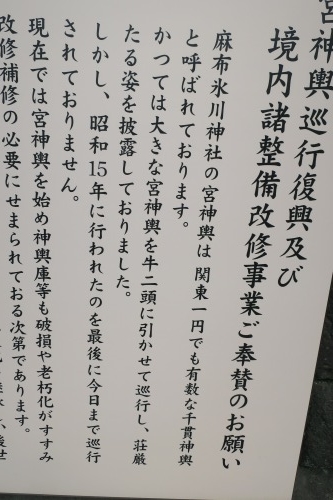 宮神輿巡行復興及び
境内諸整備改修事業ご奉賛のお願い
麻布氷川神社の宮神輿は関東一円でも有数な千貫神輿
と呼ばれております。
かつては大きな宮神輿を牛二頭に引かせて巡行し、荘厳
たる姿を披露しておりました。
しかし、昭和15年に行われたのを最後に今日まで巡行
されておりません。
現在では宮神輿を始め神輿庫等も破損や老朽化がすすみ
改修補修の必要にせまられておる次第であります。